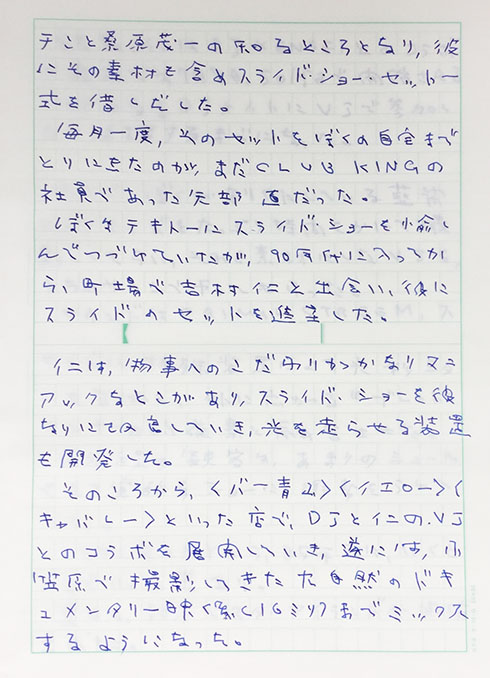 テこと桑原茂一の知るところとなり,彼
にその素材も含めスライドショー・セット一
式を借しだした。
毎月一度,そのセットをぼくの自宅まで
とりにきたのが,まだCLUB KINGの
社員であった矢部 直だった。
ぼくもテキトーにスライドショーを愉し
んでつづけていたが,90年代に入ってか
ら,町場で吉村イニと出会い,彼に
スライドのセットを進呈した。
イニは,物事へのこだわりかつかなりマニ
アックなとこがあり,スライド・ショーを彼
なりに改良していき,光を走らせる装置
も開発した。
そのころから,〈バー青山〉〈イエロー〉〈
キャバレー〉といった店で,DJとイニの,VJ
とのコラボを展開していき,遂には,小
笠原で撮影してきた大自然のドキ
ュメンタリー映像(16ミリ)までミックス
するようになった。